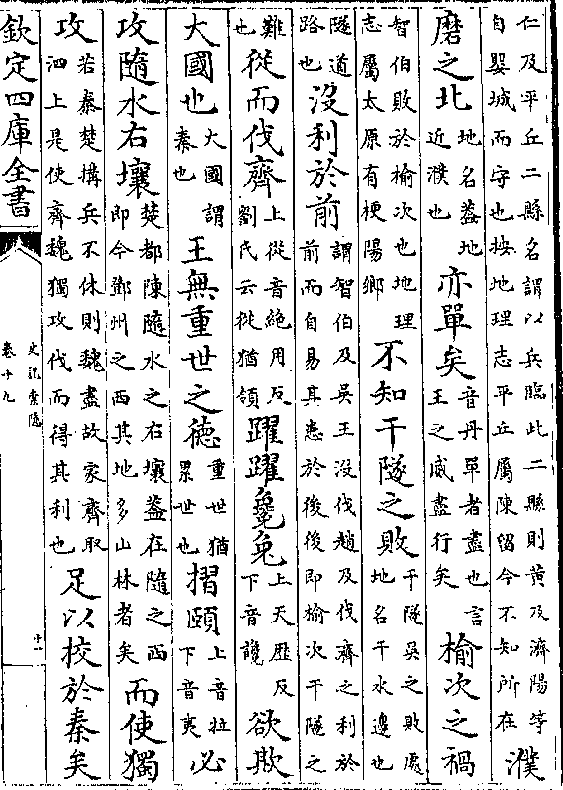 仁及平丘二縣名謂以兵臨此二縣則黄及濟陽等自嬰城而守也按地理志平丘屬陳留今不知所在濮
磨之北地名蓋地近濮也亦單矣音丹單者盡也言王之威盡行矣榆次之禍
智伯敗於榆次也地理志屬太原有梗陽鄉不知干隧之敗干隧吳之敗處地名干水邊也
隧道路也沒利於前謂智伯及吳王沒伐趙及伐齊之利於前而自易其患於後後即榆次干隧之
難也從而伐齊上從音絶用反劉氏云從猶領躍躍毚兔上天歴反下音讒欲欺
大國也大國謂秦也王無重世之德重世猶累世也摺頤上音拉下音夷必
攻隨水右壤楚都陳隨水之右壤蓋在隨之西即今鄧州之西其地多山林者矣而使獨
攻若秦楚搆兵不休則魏盡故家齊取泗上是使齊魏獨攻伐而得其利也足以校於秦矣
欽定四庫全書
史記索隱
卷十九
十一